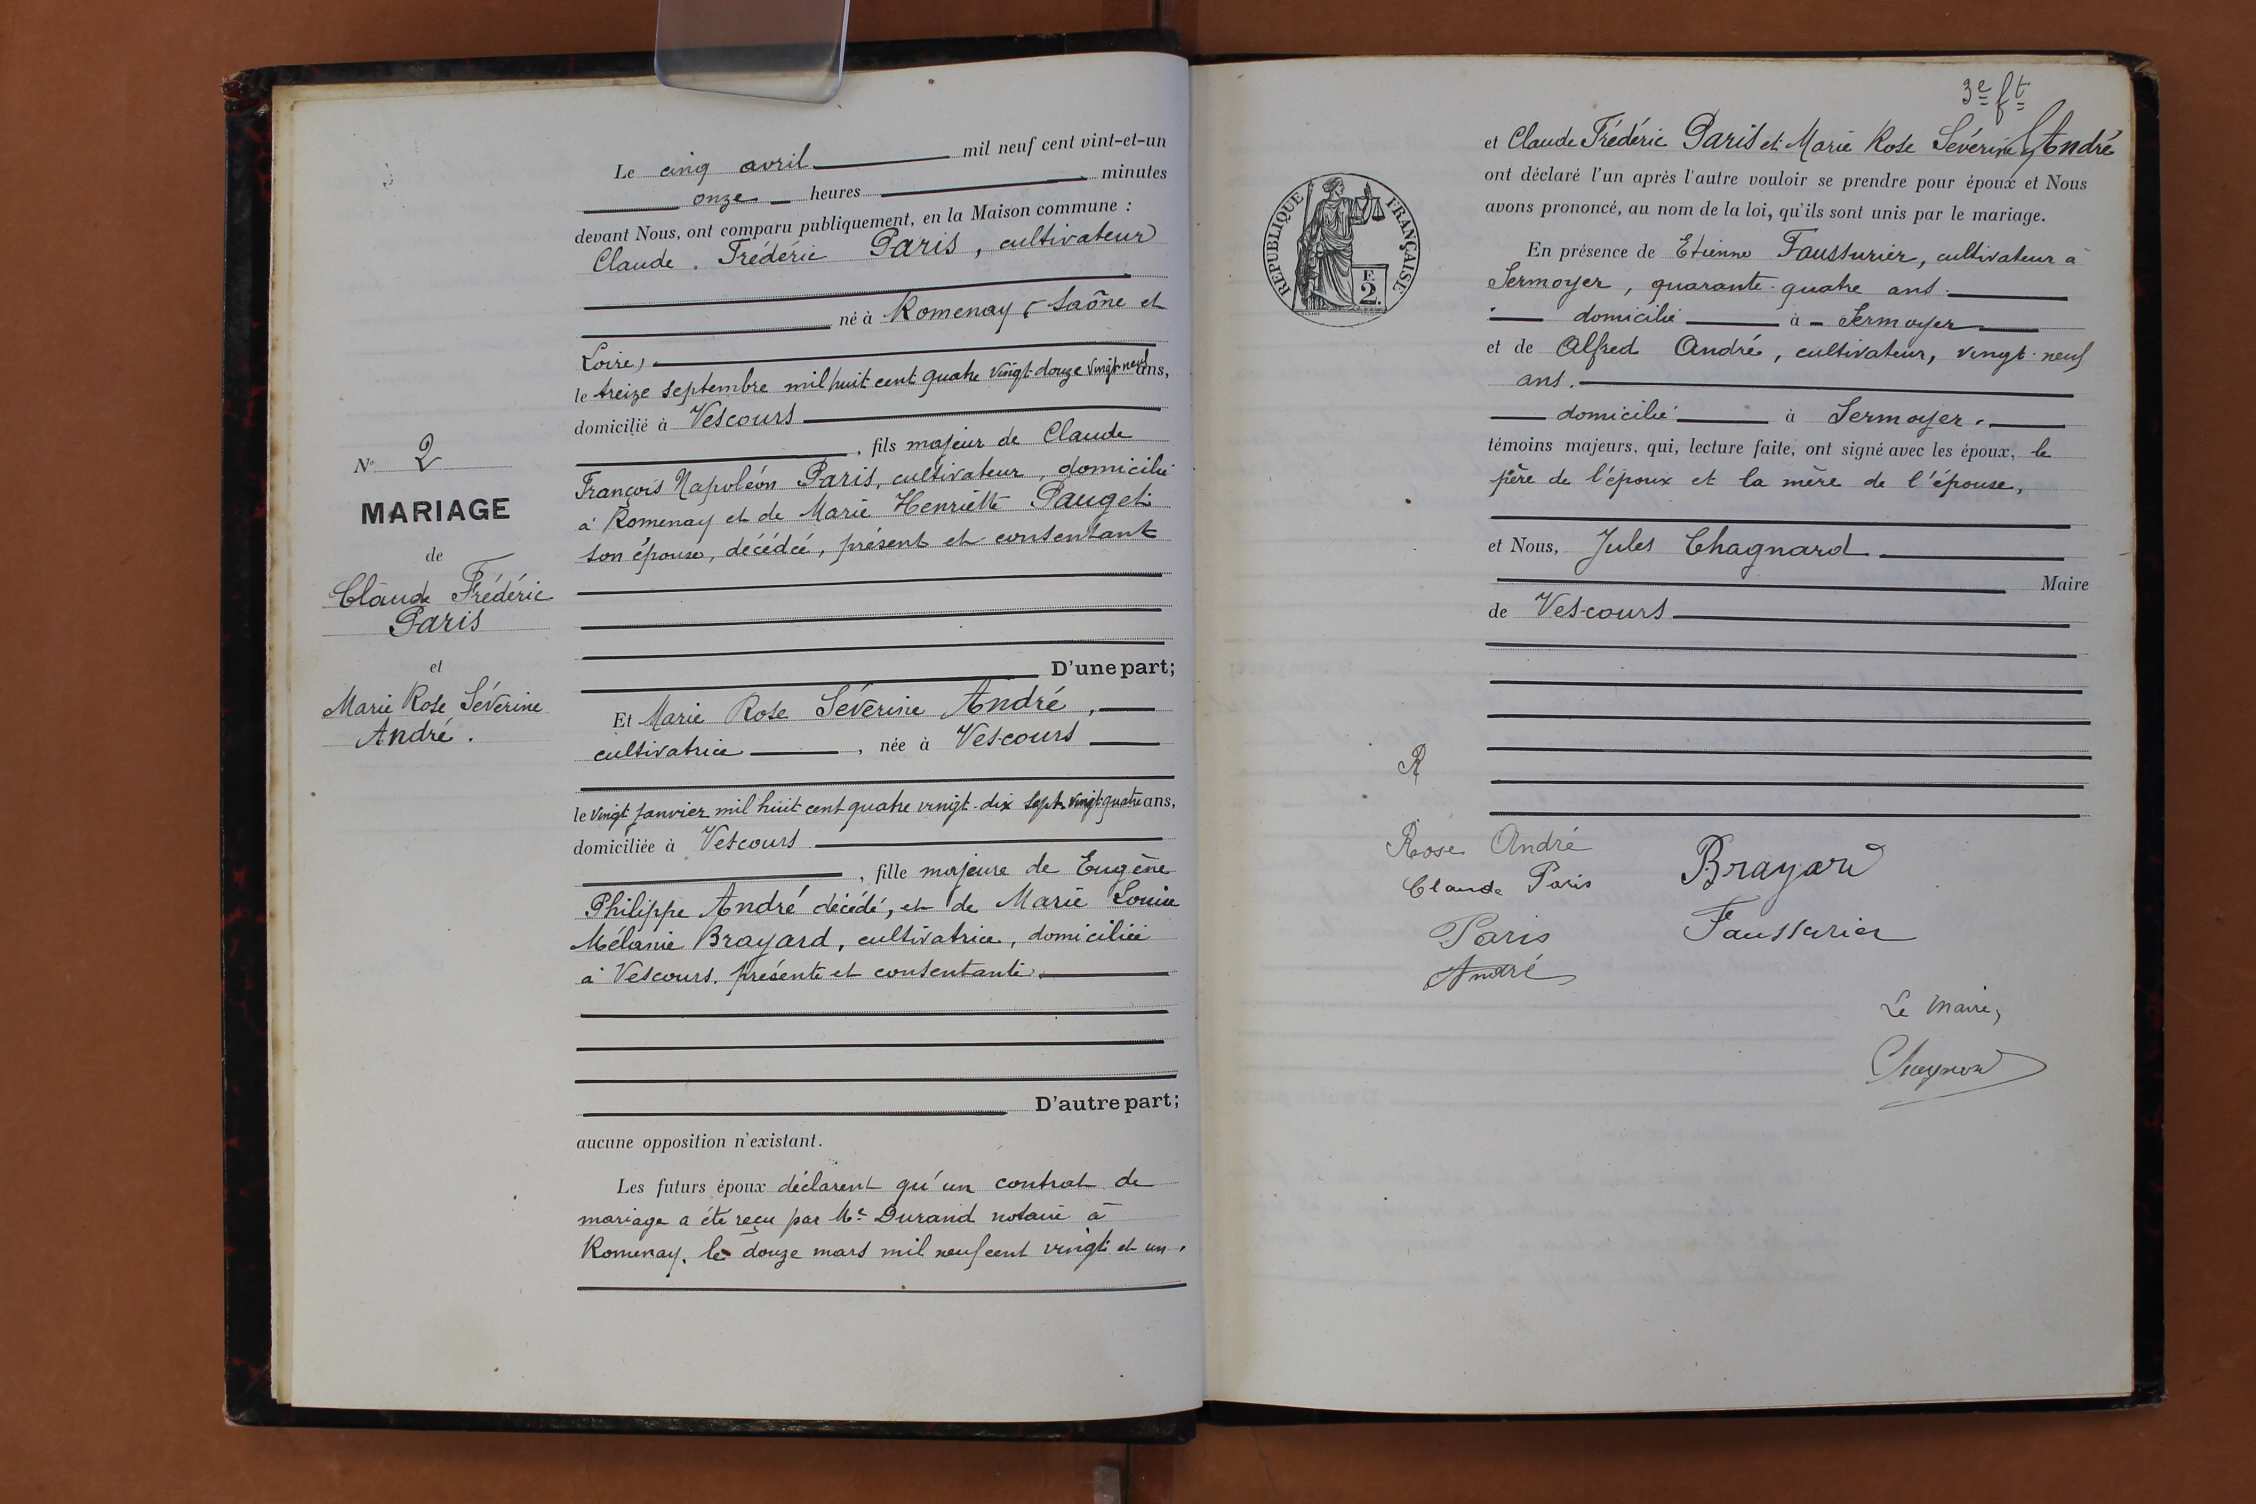 Le cinq avril mil neuf cent vint-et-un
onze heures minutes
devant Nous, ont comparu publiquement, en la Maison commune :
Claude Frédéric Paris, cultivateur
né à Romenay (Saône et
Loire)
le treize septembre mil huit cent quatre vingt douze vingt-neuf ans,
domicilié à Vescours
, fils majeur de Claude
François Napoléon Paris, cultivateur, domicilié
à Romenay et de Marie Henriette Pauget
son épouse, décédée, présent et consentant
N° 2
MARIAGE
de
Claude Frédéric
Paris
et
Marie Rose Séverine
André.
D'une part;
Et Marie Rose Séverine André,
cultivatrice, née à Vescours
le vingt janvier mil huit cent quatre vingt-dix sept vingt quatre ans,
domiciliée à Vescours
, fille majeure de Eugène
Philippe André décédé, et de Marie Louise
Mélanie Brayard, cultivatrice, domiciliée
à Vescours, présente et consentante
D'autre part;
aucune opposition n'existant.
Les futurs époux déclarent qu'un contrat de
mariage a été reçu par Me Durand notaire à
Romenay, le douze mars mil neuf cent vingt et un.
3e ft
et Claude Frédéric Paris et Marie Rose Séverine André
ont déclaré l'un après l'autre vouloir se prendre pour époux et Nous
avons prononcé, au nom de la loi, qu'ils sont unis par le mariage.
RÉPUBLIQUE FRANÇAISE
F.
2.
En présence de Etienne Faussurier, cultivateur à
Sermoyer, quarante-quatre ans.
domicilié à Sermoyer
et de Alfred André, cultivateur, vingt-neuf
ans.
domicilié à Sermoyer.
témoins majeurs, qui, lecture faite, ont signé avec les époux, le
père de l'époux et la mère de l'épouse,
et Nous, Jules Chagnard
Maire
de Vescours
R
Rose André
Brayard
Claude Paris
Paris
Faussurier
André
Le Maire,
Chagnard